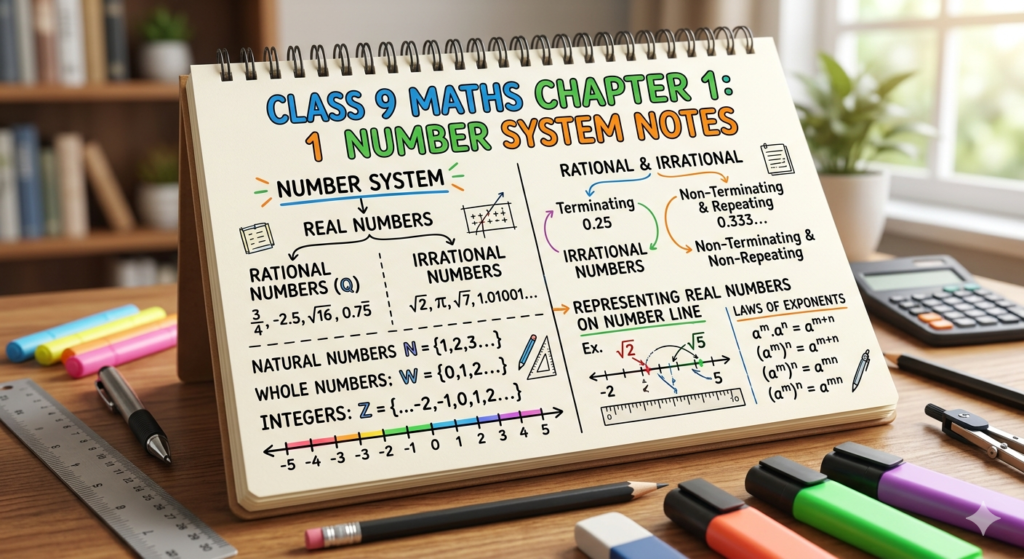 CLASS 9 MATHS CHAPTER 1:
1 NUMBER SYSTEM NOTES
NUMBER SYSTEM
REAL NUMBERS
RATIONAL
NUMBERS (Q)
3/4, -2.5, √16, 0.75̅
IRRATIONAL
NUMBERS
√2, π, √7, 1.01001...
NATURAL NUMBERS N = {1,2,3...}
WHOLE NUMBERS: W = {0,1,2...}
INTEGERS: Z = {...-2,-1,0,1,2...}
-5 -4 -3 -3 -2 -1 0 1 2 3 4 5
RATIONAL & IRRATIONAL
Terminating
0.25
IRRATIONAL
NUMBERS
Non-Terminating
& Repeating
0.333...
Non-Terminating &
Non-Repeating
REPRESENTING REAL NUMBERS
ON NUMBER LINE
Ex.
√2
√5
-2
5
LAWS OF EXPONENTS
aᵐ.aⁿ = aᵐ⁺ⁿ
(aᵐ)ⁿ = aᵐ⁺ⁿ
(aᵐ)ⁿ = aᵐⁿ
(aᵐ)ⁿ = aᵐⁿ